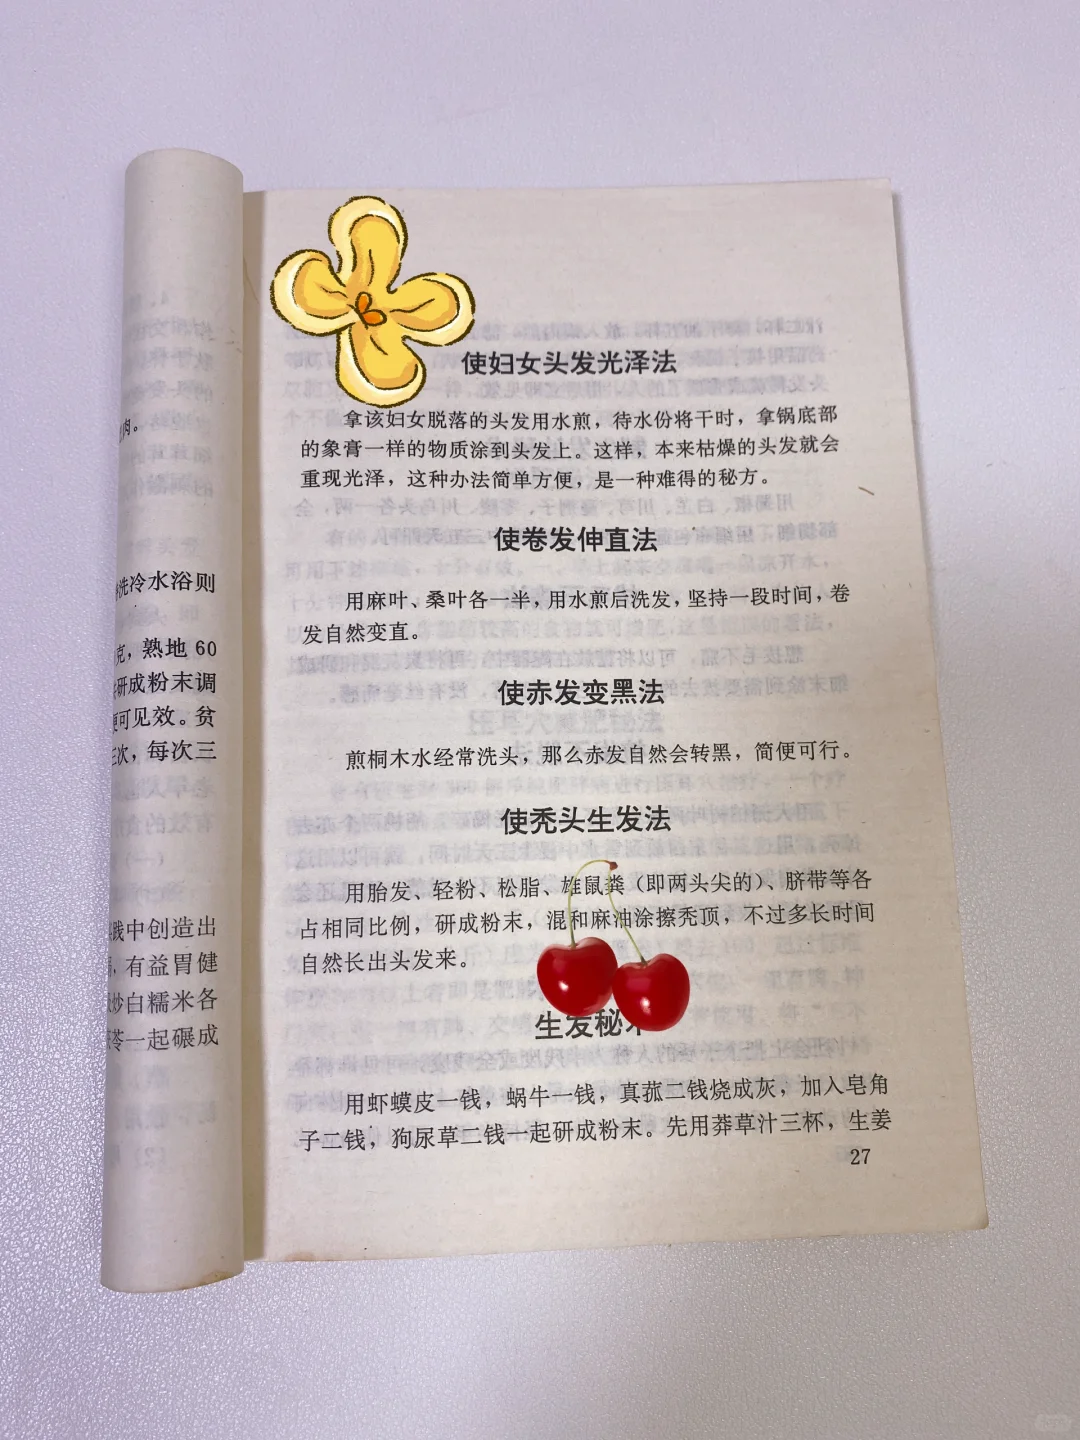 肉。
洗冷水浴则
克，熟地 60
研成粉末调
便可见效。贫
三次，每次三
践中创造出
有益胃健
炒白糯米各
苓一起碾成
使妇女头发光泽法
拿该妇女脱落的头发用水煎，待水份将干时，拿锅底部
的象膏一样的物质涂到头发上。这样，本来枯燥的头发就会
重现光泽，这种办法简单方便，是一种难得的秘方。
使卷发伸直法
用麻叶、桑叶各一半，用水煎后洗发，坚持一段时间，卷
发自然变直。
使赤发变黑法
煎桐木水经常洗头，那么赤发自然会转黑，简便可行。
使秃头生发法
用胎发、轻粉、松脂、雄鼠粪（即两头尖的）、脐带等各
占相同比例，研成粉末，混和麻油涂擦秃顶，不过多长时间
自然长出头发来。
生发秘
用虾蟆皮一钱，蜗牛一钱，真菰二钱烧成灰，加入皂角
子二钱，狗尿草二钱一起研成粉末。先用莽草汁三杯，生姜
27